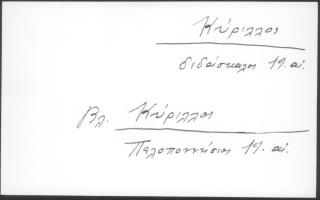 Κύριλλος
διδάσκαλος 19. αἰ.
Βλ. Κύριλλος
Πελοποννήσιος 19. αἰ.